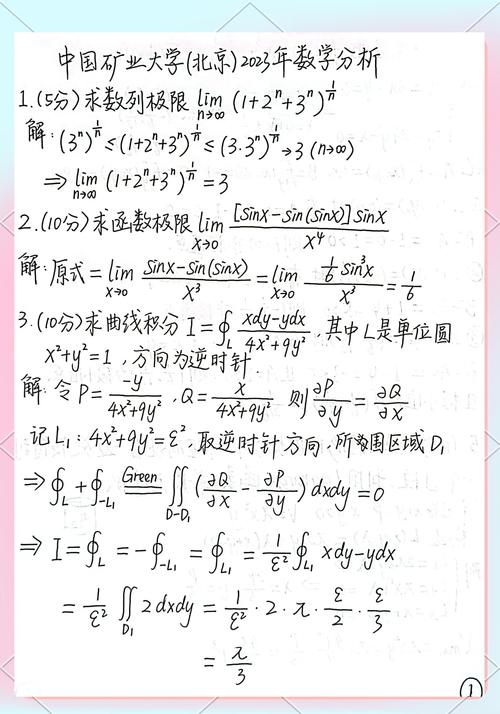 中国矿业大学(北京)2023年数学分析
1.(5分)求数列极限 lim_{n→∞} (1+2^n+3^n)^{1/n}
解: (3^n)^{1/n} ≤ (1+2^n+3^n)^{1/n} ≤ (3·3^n)^{1/n} → 3 (n→∞)
⇒ lim_{n→∞} (1+2^n+3^n)^{1/n} = 3
2.(10分)求函数极限 lim_{x→0} [sinx-sin(sinx)]sinx / x^4
解: 原式 = lim_{x→0} (sinx-sin(sinx)) / x^3 = lim_{x→0} (1/6 sin^3 x) / x^3 = 1/6
3.(10分)求曲线积分 I = ∮_L (xdy-ydx) / (4x²+9y²), 其中L是单位圆
x²+y²=1, 方向为逆时针
解: 令 P = -y / (4x²+9y²), Q = x / (4x²+9y²) 则 ∂P/∂y = ∂Q/∂x
记 L₁: 4x²+9y²=ε², 取逆时针方向, 所围区域 D₁
⇒ ∮_L + ∮_{-L₁} =Green= ∬_{D-D₁} (∂Q/∂x - ∂P/∂y) dxdy = 0
⇒ I = ∮_L = -∮_{-L₁} = ∮_{L₁} = 1/ε² ∮_{L₁} xdy-ydx
= 1/ε² ∬_{D₁} 2dxdy = 1/ε² · 2 · π · ε/2 · ε/3
= π/3
1